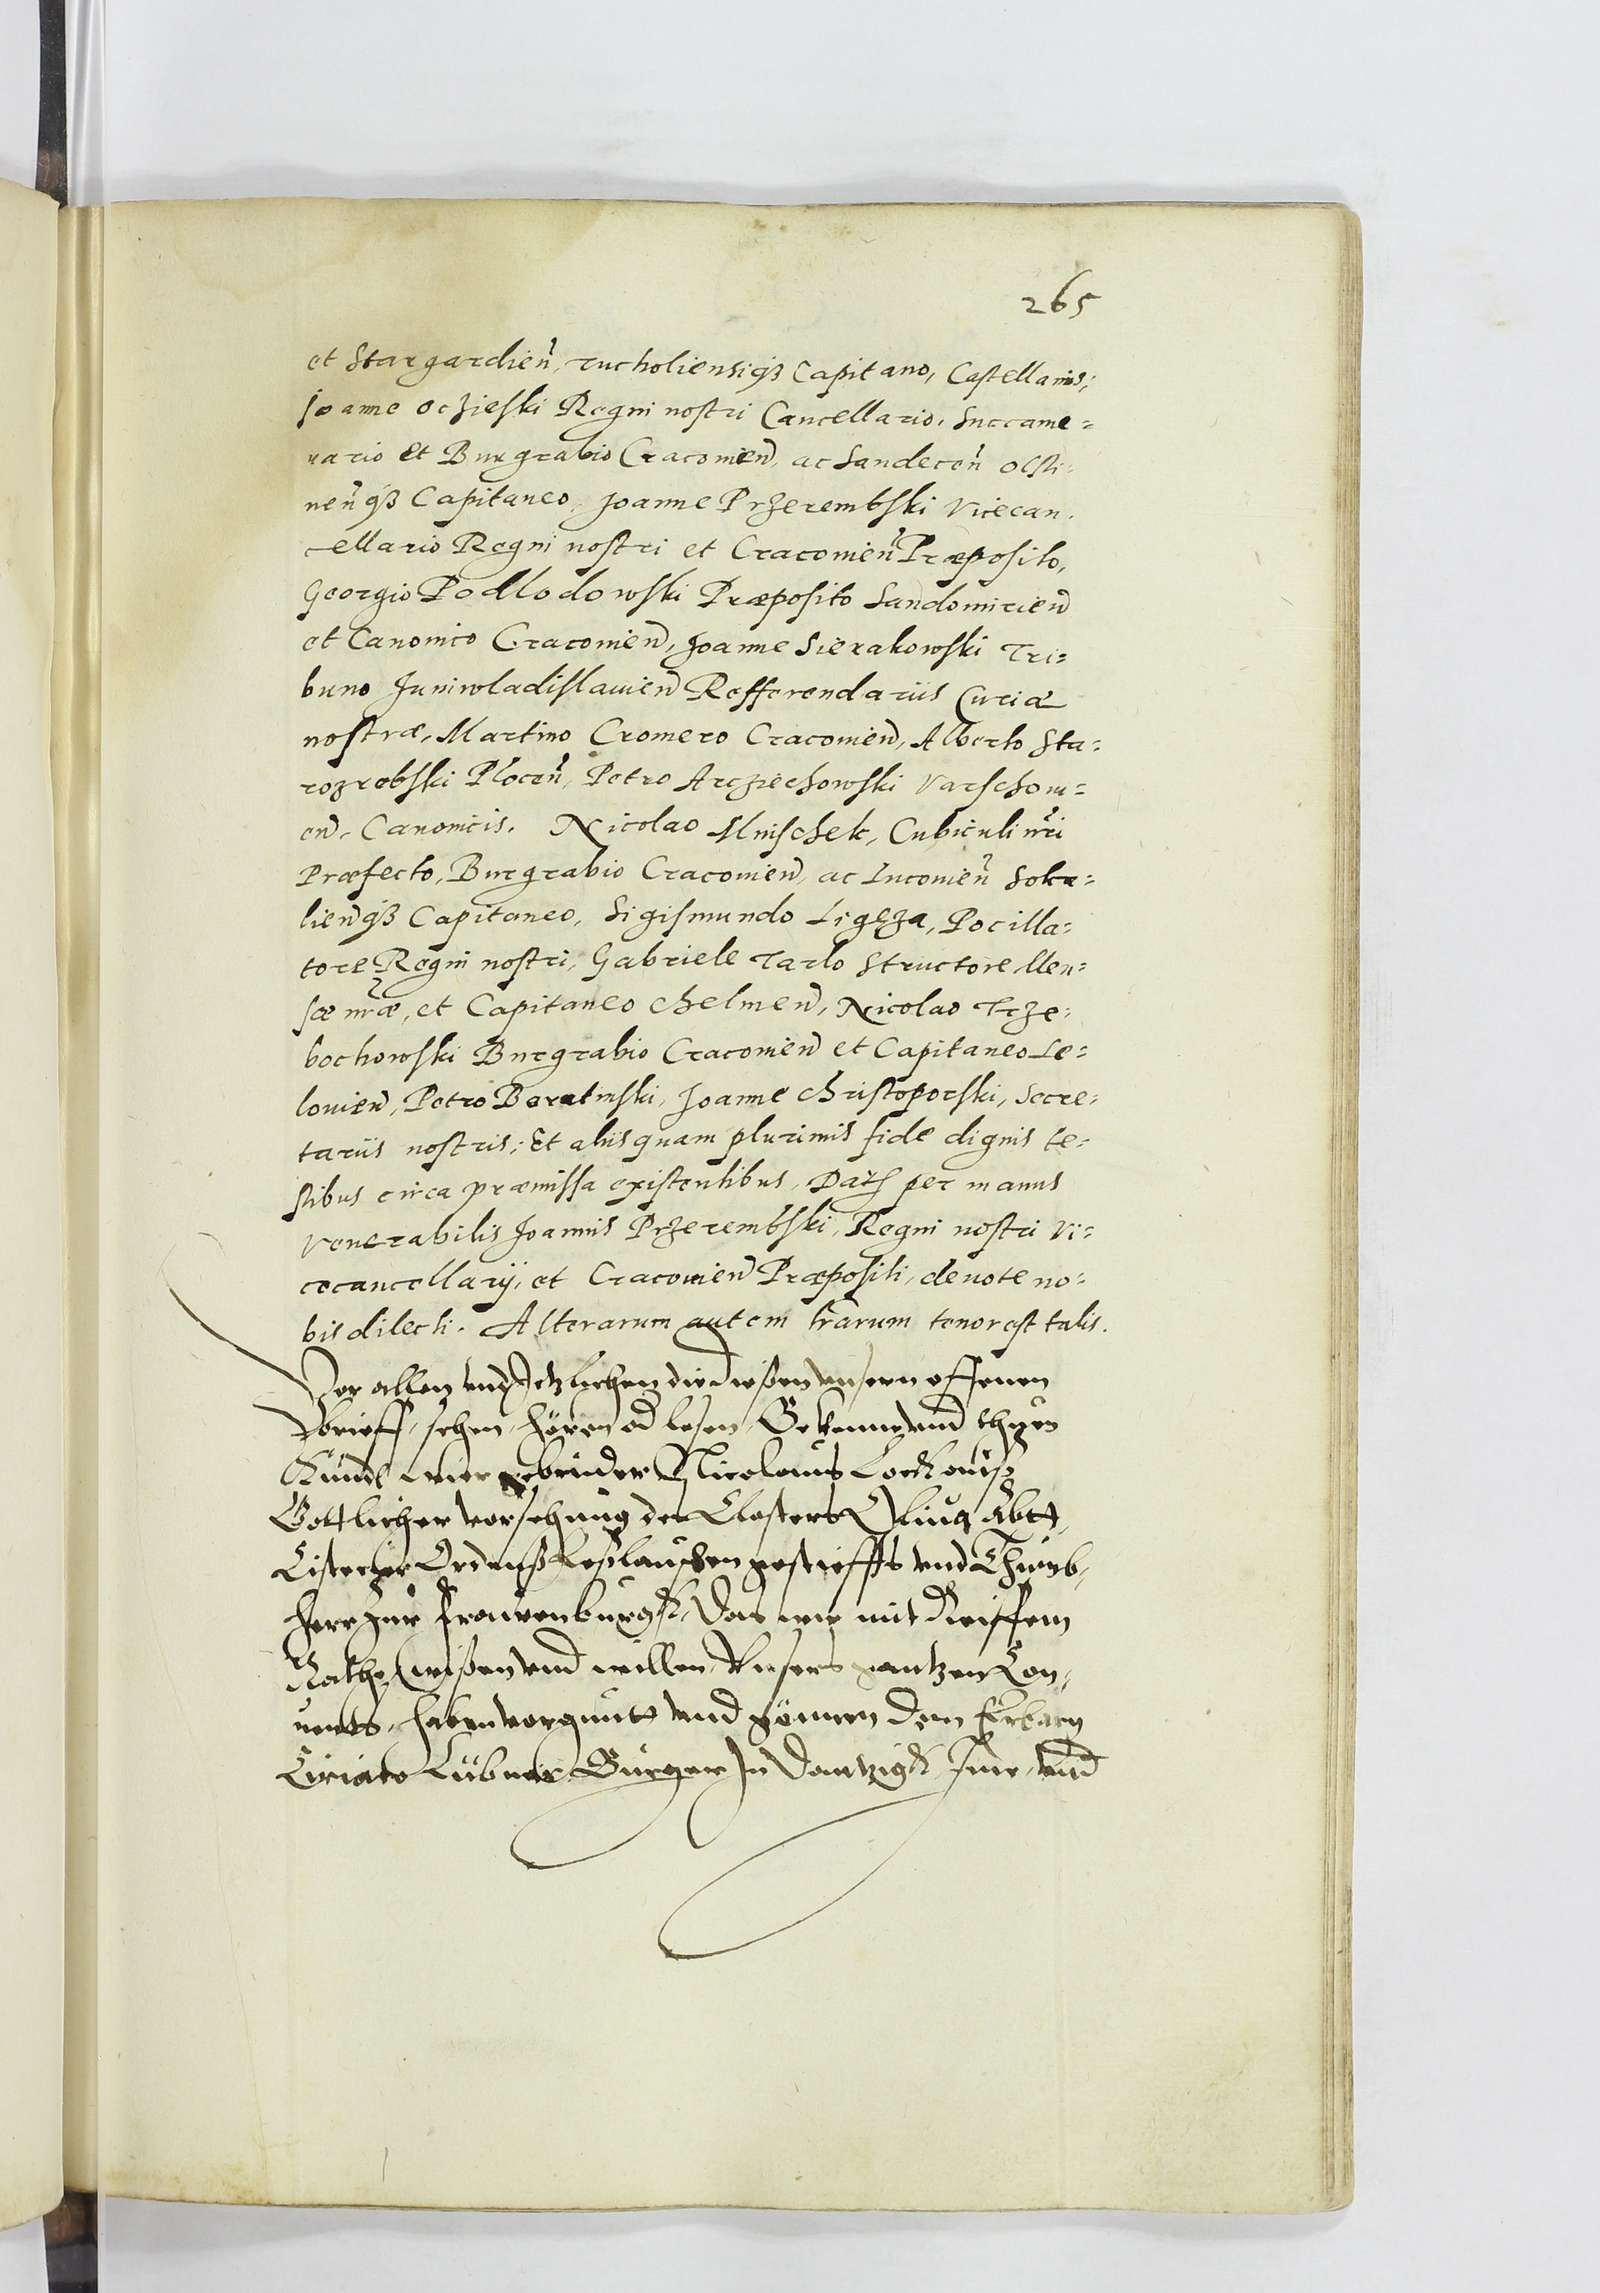 265
et Stargardien̄, tucholiensiqꝫ Capitano, Castellanis;
Joanne Oczieski Regni nostri Cancellario, Succame=
rario et Burgrabio Cracovien̄, ac Sandecen̄ Olsti-
nen̄qꝫ Capitaneo, Joanne Przerembski Vicecan-
cellario Regni nostri et Cracovien̄ Præposito,
Georgio Podlodowski Præposito Sandomirien̄
et Canonico Cracovien̄, Joanne Sierakowski Tri=
buno Juniwladislavien̄ Refferendariis Curiæ
nostræ, Martino Cromero Cracovien̄, Alberto Sta=
rozrebski Plocen̄, Petro Arczechowski Varschovi=
en̄, Canonicis. Nicolao Mnischek, Cubiculi nr̄i
Præfecto, Burgrabio Cracovien̄, ac Lucovien̄ Soka=
lien̄qꝫ Capitaneo, Sigismundo Ligęza, Pocilla=
tore Regni nostri, Gabriele Tarlo Structore Men=
sæ nr̄æ, et Capitaneo Chelmen̄, Nicolao Trze-
bochowski Burgrabio Cracovien̄ et Capitaneo Le=
lovien̄, Petro Boratinski, Joanne Christoporski, Secre=
tariis nostris; Et aliis quam plurimis fide dignis te=
stibus circa præmissa existentibus, Dat per manus
Venerabilis Joannis Przerembski, Regni nostri Vi=
cecancellarij, et Cracovien̄ Præpositi, devote no=
bis dilecti. Alterarum autem lr̄arum tenor est talis.
Vor allen und Jtzlichen die dießen unsern offenen
brieff, sehen, hören od lesen, Bekenne und thuen
Kundt wier gebruder Nicolaus Lock auß
Gottlicher vorsehung des Closters Oliua Abtt,
Cistercier Ordenß Leßlauschen gestieffts und Thumb,
herr zur Frauenburgk, Das wir mit Reiffem
Rathe, wißen und willen, Unsers gantzen Con,
uents, haben vorgunt und gönnen dem Erbarn
Ciriaco Lübner Burger In Dantzigk, Ime, und